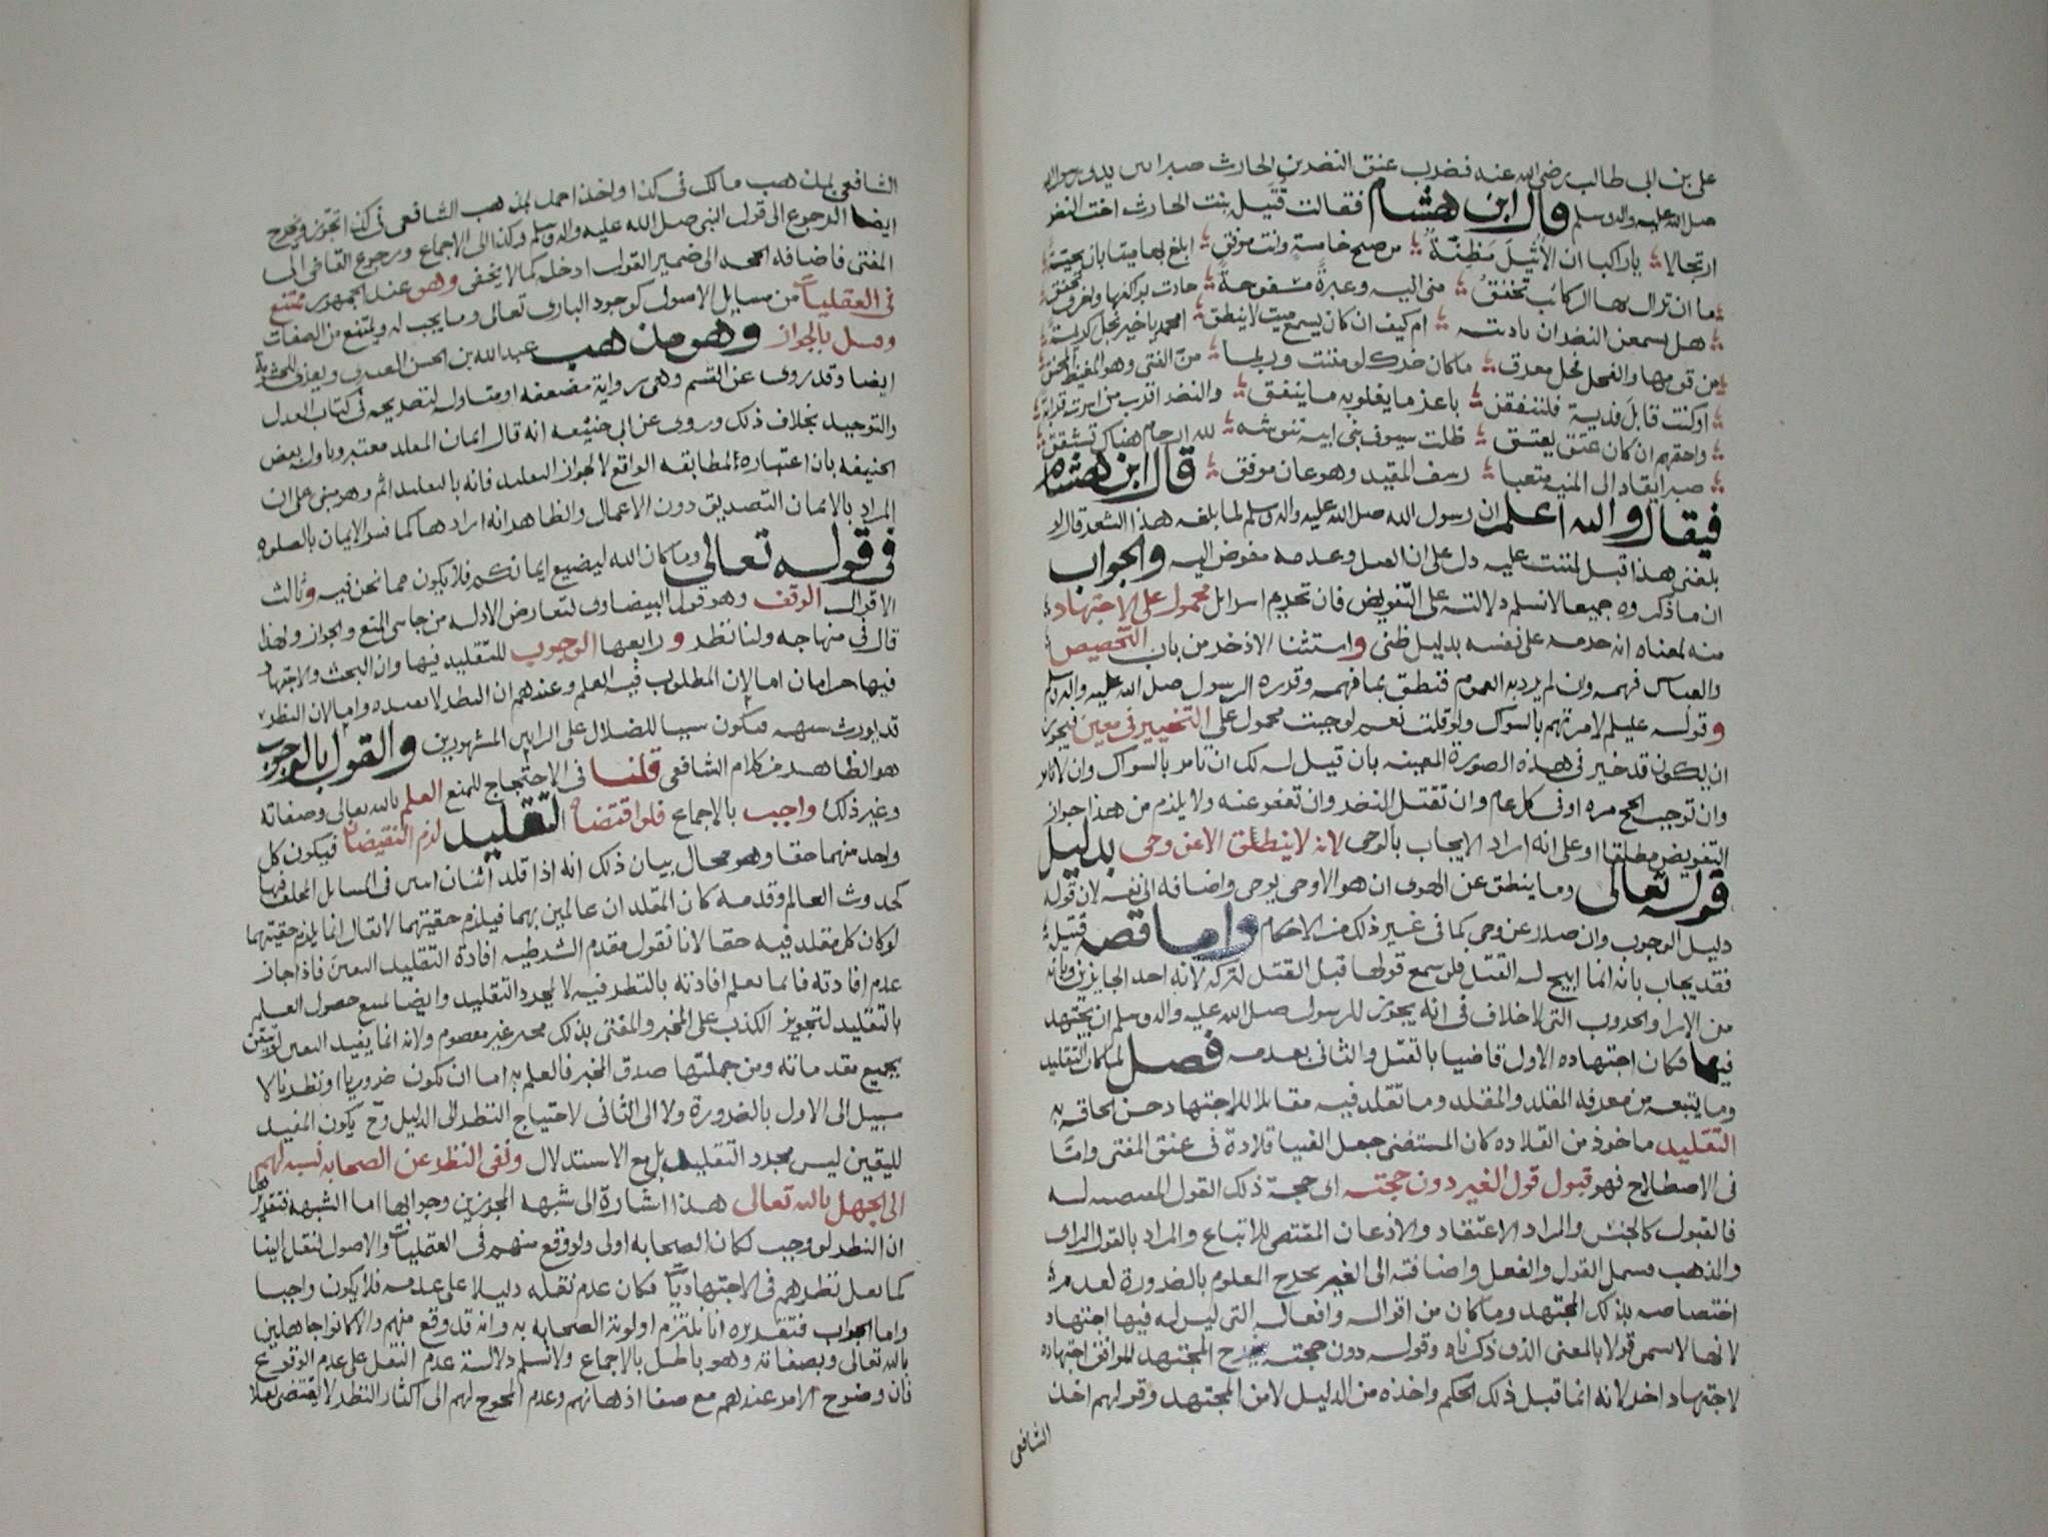 علي بن ابي طالب رضي الله عنه فضرب عنق النضر بن الحارث صبرا بين يدي رسول الله
صلى الله عليه واله وسلم قال ابن هشام فقالت قتيلة بنت الحارث اخت النضر
ارتجالا يا راكبا ان الأثيل مظنة من صبح خامسة وانت موفق ابلغ بها ميتا بان تحية
ما ان تزال بها الركائب تخفق مني اليه وعبرة مسفوحة جادت بواكفها واخرى تخنق
هل يسمعن النضر ان ناديته ام كيف ان كان يسمع ميت لا ينطق امحمد يا خير نجل كريمة
من قومها والفحل فحل معرق ما كان ضرك لو مننت وربما من الفتى وهو المغيظ المحنق
او كنت قابل فدية فلننفقن باعز ما يغلو به ما ينفق والنضر اقرب من اسرت قرابة
واحقهم ان كان عتق يعتق ظلت سيوف بني ابيه تنوشه لله ارحام هناك تشقق
صبرا يقاد الى المنية متعبا رسف المقيد وهو عان موثق قال ابن هشام
فيقال والله اعلم ان رسول الله صلى الله عليه واله وسلم لما بلغه هذا الشعر قال لو
بلغني هذا قبل لمننت عليه دل على ان القتل وعدمه مفوض اليه والجواب
ان ما ذكروه جميعا لا نسلم دلالته على التفويض فان تحريم اسرائل محمول على الاجتهاد
منه لمعناه انه حرمه على نفسه بدليل ظني واستثنا الاذخر من باب التخصيص
والعباس فهمه وان لم يرد به العموم فنطق بما فهمه وقرره الرسول صلى الله عليه واله وسلم
وقوله عليلم لامرتهم بالسواك ولو قلت نعم لوجبت محمول على التخيير في معين فيجوز
ان يكون قد خير في هذه الصورة المعينه بان قيل له لك ان تامر بالسواك وان لا تامر
وان توجب الحج مره او في كل عام وان تقتل النضر وان تعفو عنه ولا يلزم من هذا جواز
التفويض مطلقا او على انه اراد الايجاب بالوحي لانه لا ينطق الا عن وحي بدليل
قوله تعالى وما ينطق عن الهوى ان هو الا وحي يوحى واضافه الى نفسه لان قوله
دليل الوجوب وان صدر عن وحي كما في غير ذلك من الاحكام واما قصة قتيلة
فقد يجاب بانه انما ابيح له القتل فلو سمع قولها قبل القتل لتركه لانه احد الجايزين وبانه
من الارا والحروب التي لا خلاف في انه يجوز للرسول صلى الله عليه واله وسلم ان يجتهد
فيها فكان اجتهاده الاول قاضيا بالقتل والثاني بعدمه فصل لما كان التقليد
وما يتبعه من معرفة المقلد والمقلد وما تقلد فيه مقابلا للاجتهاد حسن الحاقه به
التقليد ماخوذ من القلاده كان المستفتي جعل الفتيا قلادة في عنق المفتي وامّا
في الاصطلاح فهو قبول قول الغير دون حجته اي حجة ذلك القول المعينه له
فالقبول كالجنس والمراد الاعتقاد والاذعان المقتضي للاتباع والمراد بالقول الراي
والمذهب فيشمل القول والفعل واضافته الى الغير يخرج المعلوم بالضرورة لعدم
اختصاصه بذلك المجتهد وما كان من اقواله وافعاله التي ليس له فيها اجتهاد
لانها لا تسمى قولا بالمعنى الذي ذكرناه وقوله دون حجته يخرج المجتهد الموافق اجتهاده
لاجتهاد اخر لانه انما قبل ذلك الحكم واخذه من الدليل لا من المجتهد وقولهم اخذ
الشافعي
الشافعي بمذهب مالك في كذا واخذ احمد بمذهب الشافعي في كذا تجوّز ويخرج
ايضا الرجوع الى قول النبي صلى الله عليه واله وسلم وكذا الى الاجماع ورجوع القاضي الى
المفتي فاضافه الحجه الى ضمير القول ادخل كما لا يخفى وهو عند الجمهور ممتنع
في العقليات من مسايل الاصول كوجود الباري تعالى وما يجب له ويمتنع من الصفات
وقيل بالجواز وهو مذهب عبدالله بن الحسن العنبري ويعزى للحشوية
ايضا وقد روي عن القسم وهي رواية مضعفه او متاوله لتصريحه في كتاب العدل
والتوحيد بخلاف ذلك وروي عن ابي حنيفه انه قال ايمان المقلد معتبر وتاوله بعض
الحنيفه بان اعتباره لمطابقه الواقع لا لجواز التقليد فانه بالتقليد اثم وهو مبني على ان
المراد بالايمان التصديق دون الاعمال والظاهر انه ارادها كما فسر الايمان بالصلوه
في قوله تعالى وما كان الله ليضيع ايمانكم فلا يكون مما نحن فيه وثالث
الاقوال الوقف وهو قول البيضاوي لتعارض الادله من جانبي المنع والجواز ولهذا
قال في منهاجه ولنا نظر ورابعها الوجوب للتقليد فيها وان البحث والاجتهاد
فيها حرامان اما لان المطلوب فيه العلم وعندهم ان النظر لا يفيده واما لان النظر
قد يورث شبهه فيكون سببا للضلال على الرايين المشهورين والقول بالوجوب
هو الظاهر من كلام الشافعي قلنا في الاحتجاج للمنع العلم بالله تعالى وصفاته
وغير ذلك واجب بالاجماع فلو اقتضاه التقليد لزم النقيضان فيكون كل
واحد منهما حقا وهو محال بيان ذلك انه اذا قلد اثنان اثنين في المسايل المختلف فيها
كحدوث العالم وقدمه كان المقلدان عالمين بهما فيلزم حقيتهما لا يقال انما يلزم حقيتهما
لو كان كل مقلد فيه حقا لانا نقول مقدم الشرطيه افادة التقليد اليقين فاذا جاز
عدم افادته فانما تعلم افادته بالنظر فيه لا بمجرد التقليد وايضا يمتنع حصول العلم
بالتقليد لتجويز الكذب على المخبر والمفتي بذلك مخبر غير معصوم ولانه انما يفيد اليقين ان تيقن
بجميع مقدماته ومن جملتها صدق المخبر فالعلم به اما ان يكون ضروريا او نظريا لا
سبيل الى الاول بالضرورة ولا الى الثاني لاحتياج النظر الى الدليل وح يكون المفيد
لليقين ليس مجرد التقليد بل مع الاستدلال ونفي النظر عن الصحابه نسبه لهم
الى الجهل بالله تعالى هذا اشارة الى شبهه المجوزين وجوابها اما الشبهه فتقريرها
ان النظر لو وجب لكان الصحابه اولى ولو وقع منهم في العقليات والاصول لنقل الينا
كما نقل نظرهم في الاجتهاديات فكان عدم نقله دليلا على عدمه فلا يكون واجبا
واما الجواب فتقديره انا نلتزم اولوية الصحابه به وانه قد وقع منهم والا كانوا جاهلين
بالله تعالى وبصفاته وهو باطل بالاجماع ولا نسلم دلالة عدم النقل على عدم الوقوع
فان وضوح الامر عندهم مع صفا اذهانهم وعدم المحوج لهم الى اكثار النظر لا يقتضي نقلا